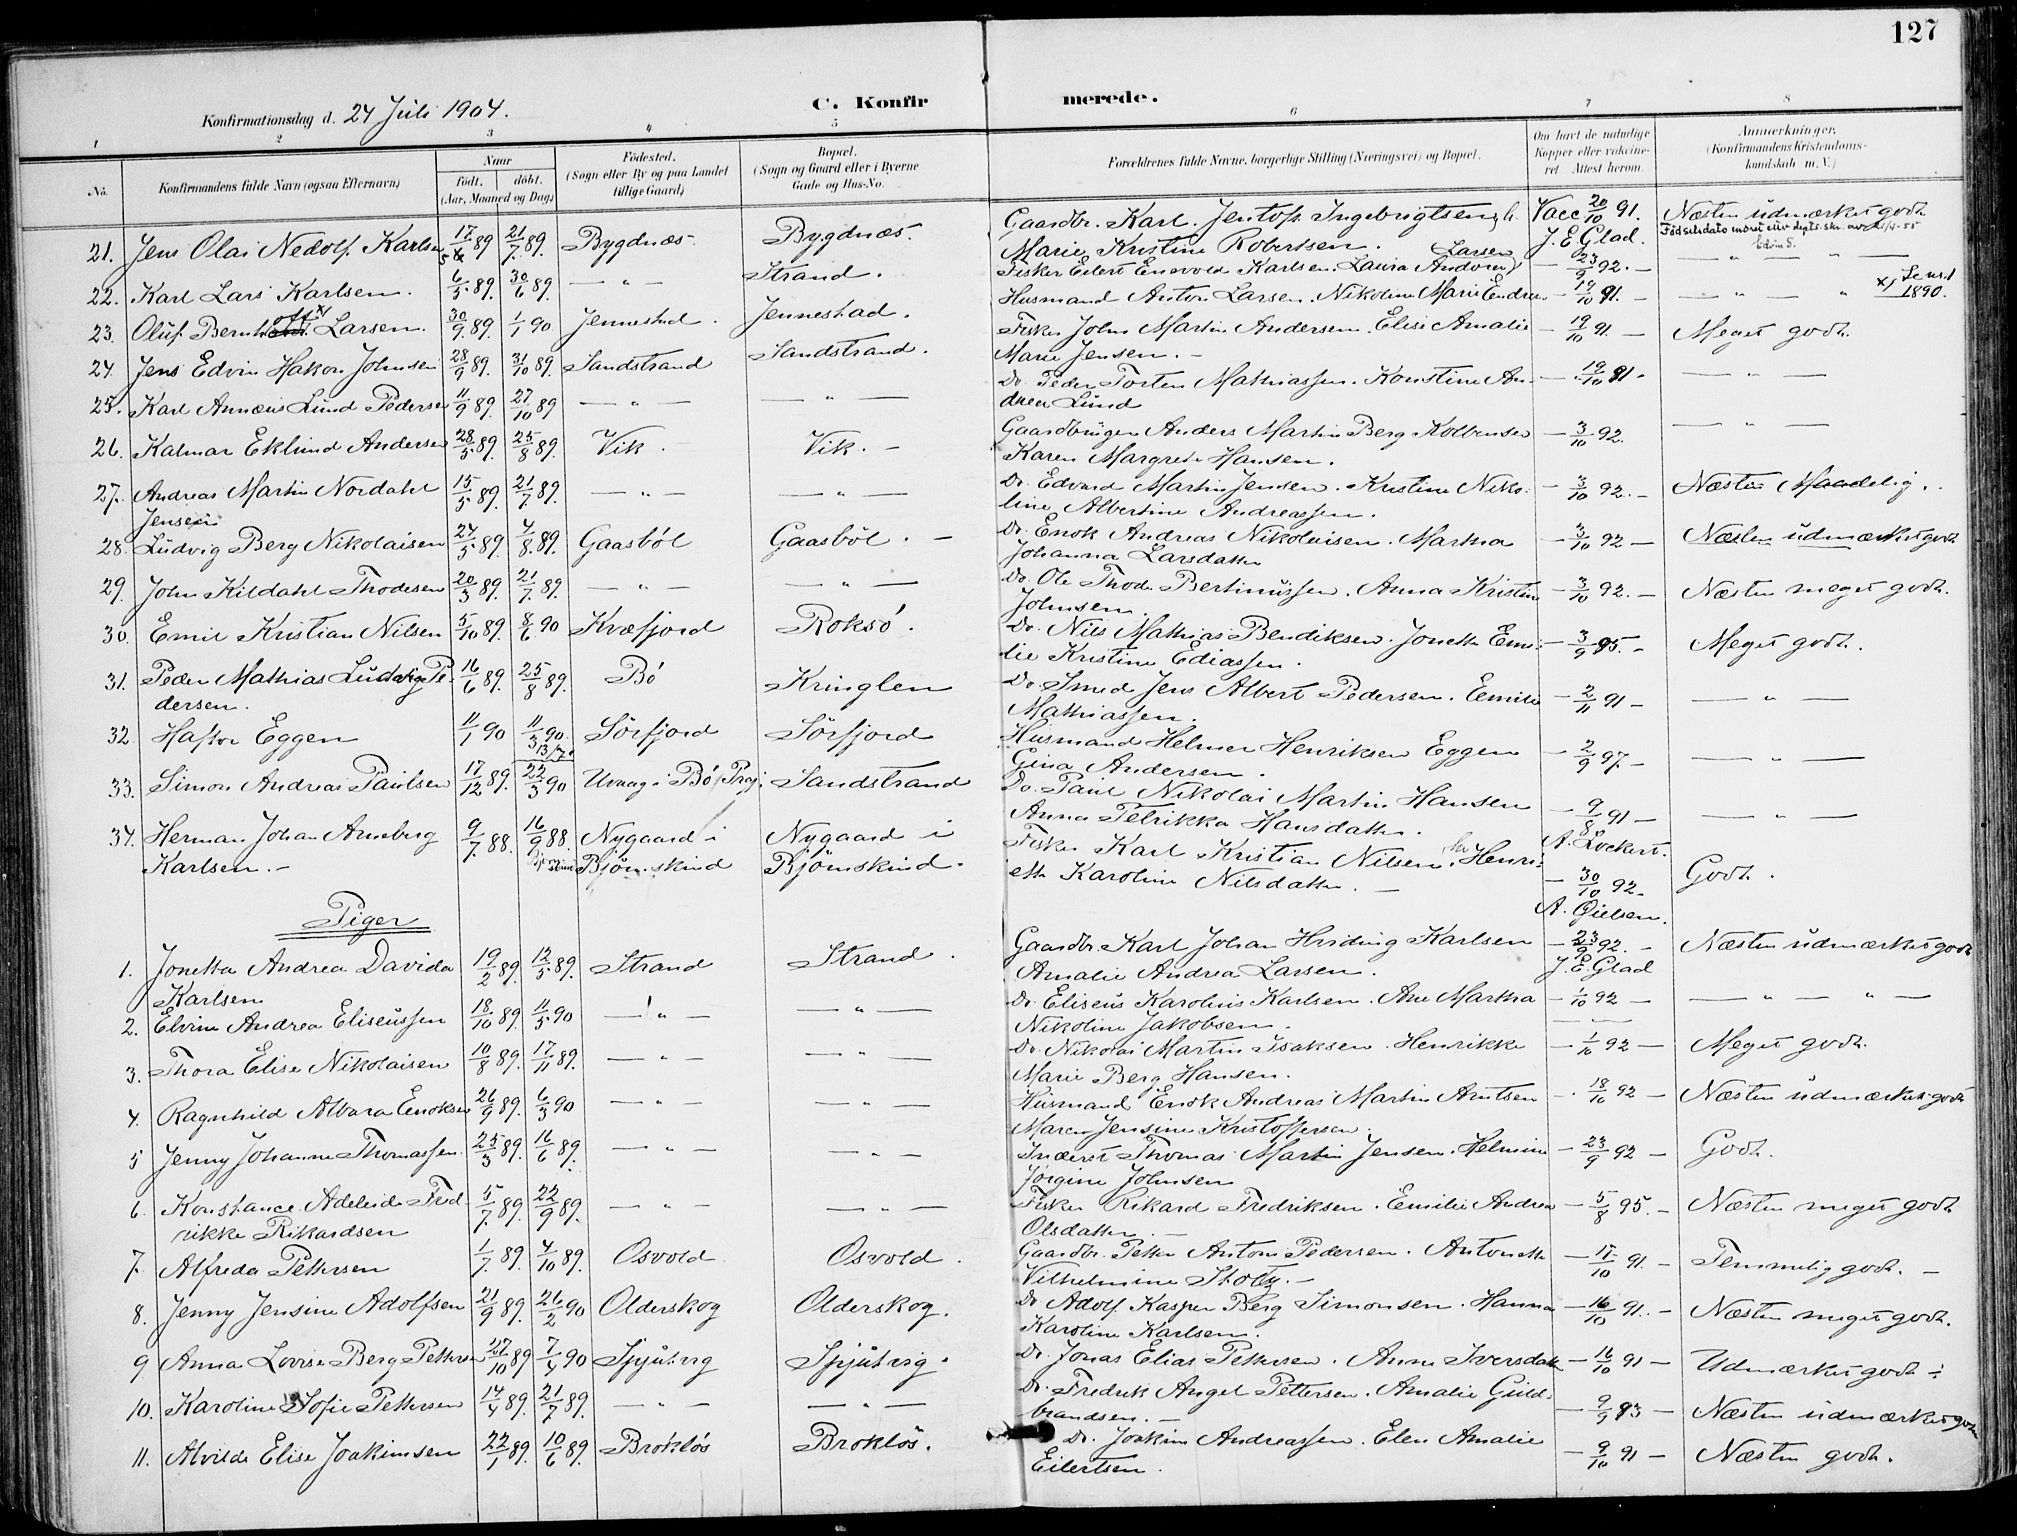 127
Konfirmationsdag d. 24 Juli 1904. C. Konfir merede.
1 2 3 4 5 6 7 8
No. Konfirmandens fulde Navn (ogsaa Efternavn) Naar født. døbt. (Aar, Maaned og Dag) Fødested. (Sogn eller By og paa Landet tillige Gaard) Bopæl. (Sogn og Gaard eller i Byerne Gade og Hus-No. Forældrenes fulde Navne, borgerlige Stilling (Næringsvei) og Bopæl. Om havt de naturlige Kopper eller vaccineret Attest herom. Anmærkninger. (Konfirmandens Kristendomskundskab m. V.)
21. Jens Olai Nedolf Karlsen 17/5 89 21/7 89. Bygdnæs. Bygdnæs. Gaardbr. Karl Jentoft Ingebrigtsen Vacc 20/10 91. Næsten udmærket godt
Marie Kristine Robertsen. J. E. Glad.
22. Karl Lars Karlsen. 6/5 89. 30/6 89. — " — Strand. Fisker Eilert Enevold Karlsen. Laura Andora Larsen — 23/9 92. — — " — " —
23. Oluf Bernhoff x) Larsen. 30/9 89. 1/1 90 Jennestad. Jennestad. Husmand Anton Larsen. Nikoline Marie Endresen — 19/10 91. — — " — " x) Senest 1890.
24. Jens Edvin Hakon Johnsen 28/9 89. 31/10 89. Sandstrand Sandstrand. Fisker John Martin Andersen. Elise Amalie — 19/10 91 — Meget godt.
Marie Jensen. —
25. Karl Annæus Lund Pedersen 11/9 89. 27/10 89 — " — — " — Do. Peder Torten Mathiassen. Konstine An- — 19/10 91 - — " —
drea Lund
26. Kalmar Eklund Andersen 28/5 89. 25/8 89. Vik. Vik. — Gaardbruger Anders Martin Berg Kolbensen — 3/10 92. — " —
Karen Margrete Hansen.
27. Andreas Martin Nordahl 15/5 89. 21/7 89. — " — — " — Do. Edvard Martin Jensen. Kristine Niko- — 3/10 92. — Næsten Maadelig.
Jensen line Albertine Andreassen.
28. Ludvig Berg Nikolaisen 24/5 89 4/8 89. Gaasbøl Gaasbøl. — Do. Enok Andreas Nikolaisen. Martha — 3/10 92 — Næsten udmærket godt
Johanna Larsdatter
29. John Kildahl Thodesen 20/3 89. 21/7 89. — " — — " — Do. Ole Thode Bertinussen. Anna Kristine — 3/10 92. — Næsten meget godt.
Johnsen.
30. Emil Kristian Nilsen 5/10 89. 8/6 90 Kvæfjord Roksø. Do. Nils Mathias Bendiksen. Jonetta Emi- — 3/9 95. — Meget godt.
lie Kristine Ediassen.
31. Peder Mathias Ludvig Pe- 16/6 89. 25/8 89. Bø Kringlen Do. Smed Jens Albert Pedersen. Emilie — 2/11 91 — — " —
dersen. Mathiassen.
32. Haftor Eggen 11/1 90 11/3 90. Sørfjord Sørfjord Husmand Helmer Henriksen Eggen — 2/9 97. — — " —
Gina Andersen.
33. Simon Andreas Paulsen 17/12 89. 22/3 90 i Bø Sandstrand Do. Paul Nikolai Martin Hansen — 9/8 91 — — " —
Anna Petrikka Hansdatter. A. Lockert.
34. Herman Johan Arneberg 9/7 88. 16/9 88. Nygaard i Nygaard i Fisker Karl Kristian Nilsen Henri-
Karlsen. — Bjørnskind Bjørnskind. ette Karoline Nilsdatter. — — 30/10 92. Godt.
A. Gielsen.
Piger
1. Jonetta Andrea Davida 19/2 89. 12/5 89. Strand Strand. Gaardbr. Karl Johan Hviding Karlsen — 23/9 92. — Næsten udmærket godt
Karlsen Amalie Andrea Larsen. J. E. Glad
2. Elvine Andrea Eliseussen 18/10 89. 11/5 90 — " — — " — Do. Eliseus Karolius Karlsen. Ane Martha — 1/10 92 — — " — " —
Nikoline Jakobsen.
3. Thora Elise Nikolaisen 10/8 89. 17/11 89. — " — — " — Do. Nikolai Martin Isaksen. Henrikke — 1/10 92 — Meget godt.
Marie Berg Hansen.
4. Ragnhild Alvara Enoksen 26/9 89. 6/3 90 — " — — " — Husmand Enok Andreas Martin Arntsen — 18/10 92 — Næsten udmærket godt
Maren Jensine Kristoffersen.
5 Jenny Johanne Thomassen. 25/3 89. 16/6 89. — " — — " — Inderst Thomas Martin Jensen. Helmine — 23/9 92 — Godt.
Jørgine Johnsen
6. Konstance Adeleide Fred- 5/7 89. 22/9 89. — " — — " — Fisker Rikard Fredriksen. Emilie Andrea — 5/8 95. — Næsten meget godt
rikke Rikardsen Olsdatter. —
7. Alfreda Pettersen 1/7 89. 4/10 89. Osvold Osvold. Gaardbr. Petter Anton Pedersen. Antonette — 17/10 91. — Temmelig godt. —
Vilhelmine Stoltz. —
8. Jenny Jensine Adolfsen 21/9 89. 26/2 90 Olderskog Olderskog. Do Adolf Kasper Berg Simonsen. Hanna — 16/10 91. — Næsten meget godt.
Karoline Karlsen.
9 Anna Lovise Berg Pettersen 27/10 89 7/4 90 Spjutvig Spjutvig. Do. Jonas Elias Pettersen. Anne Iversdatter — 16/10 91 — Udmærket godt ÷
10. Karoline Sofie Pettersen 14/4 89. 21/7 89. — " — — " — Do. Fredrik Angel Pettersen. Amalie Guld- — 9/9 93 — Næsten udmærket godt
brandsen. —
11. Alvilde Elise Joakimsen 22/1 89. 10/6 89. Brokløs Brokløs. Do. Joakim Andreassen. Elen Amalie — 9/10 91 — Næsten godt.
Eilertsen.